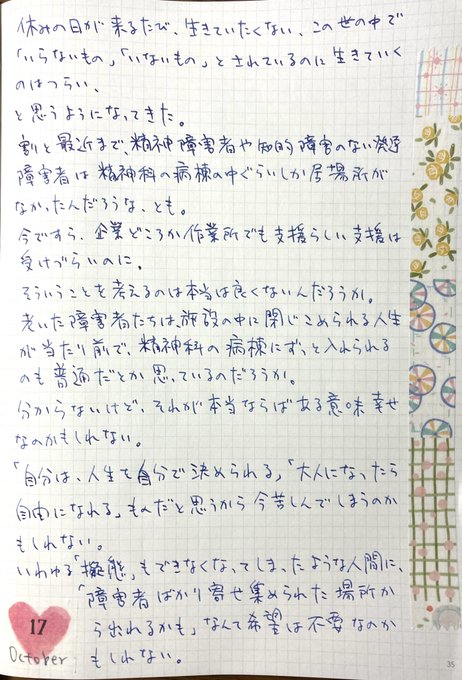 休みの日が来るたび、生きていたくない、この世の中で
「いらないもの」「いないもの」とされているのに生きていく
のはつらい、
と思うようになってきた。
割と最近まで、精神障害者や知的障害のない発達
障害者は精神科の病棟の中ぐらいしか居場所が
なかったんだろうな、とも。
今ですら、企業どころか作業所でも支援らしい支援は
受けづらいのに。
そういうことを考えるのは本当は良くないんだろうか。
老いた障害者たちは、施設の中に閉じこめられる人生
が当たり前で、精神科の病棟にずっと入れられる
のも普通だとか思っているのだろうか。
分からないけど、それが本当ならばある意味幸せ
なのかもしれない。
「自分は、人生を自分で決められる」「大人になったら
自由になれる」ものだと思うから今苦しんでしまうのか
もしれない。
いわゆる「擬態」もできなくなってしまったような人間に、
「障害者ばかり寄せ集められた場所か
ら出れるかも」なんて希望は不要なのか
もしれない。
17
October
35